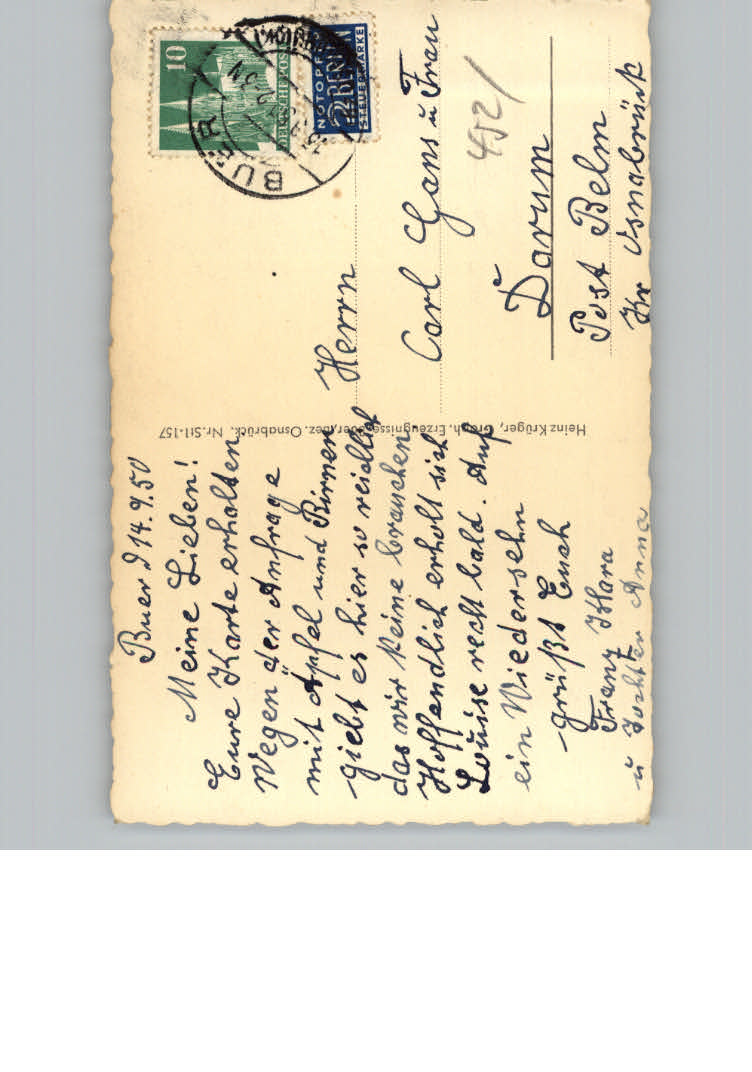 Buer d 14.9.50
Meine Lieben!
Eure Karte erhalten
Wegen der Anfrage
mit Äpfel und Birnen
giebt es hier so reichlich
das wir keine brauchen
Hoffendlich erholt sich
Louise recht bald. Auf
ein Wiedersehn
grüßt Euch
Franz Klara
u Tochter Anna
Heinz Krüger, Graph. Erzeugnisse, Buer, Bez. Osnabrück. Nr. St1-157
10
DEUTSCHE POST
NOTOPFER
2 BERLIN
STEUERMARKE
BUER
452/
Herrn
Carl Gans u Frau
Darum
Post Belm
Kr Osnabrück